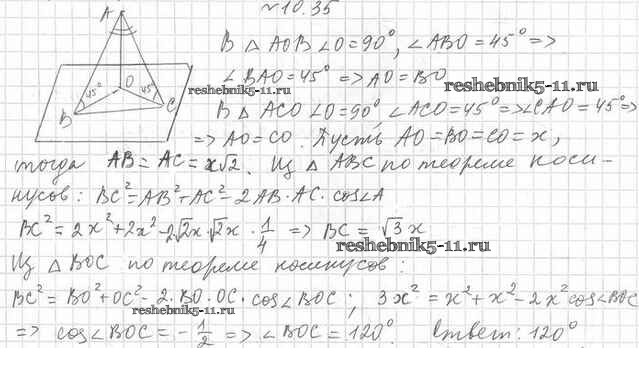 №10.35
A
В △ AOB ∠O=90°, ∠ABO=45° =>
∠BAO=45° => AO=BO
reshebnik5-11.ru
reshebnik5-11.ru
45°
O
45°
B
C
В △ ACO ∠O=90° ∠ACO=45° => ∠CAO=45° =>
=> AO=CO. Пусть AO=BO=CO=x,
тогда AB=AC=x√2. Из △ ABC по теореме коси-
нусов: BC²=AB²+AC²-2AB·AC·cos∠A
BC²=2x²+2x²-2√2x·√2x·1/4 => BC=√3x
reshebnik5-11.ru
Из △ BOC по теореме косинусов:
BC²=BO²+OC²-2·BO·OC·cos∠BOC; 3x²=x²+x²-2x²cos∠BOC
reshebnik5-11.ru
=> cos∠BOC=-1/2 => ∠BOC=120°. Ответ: 120°